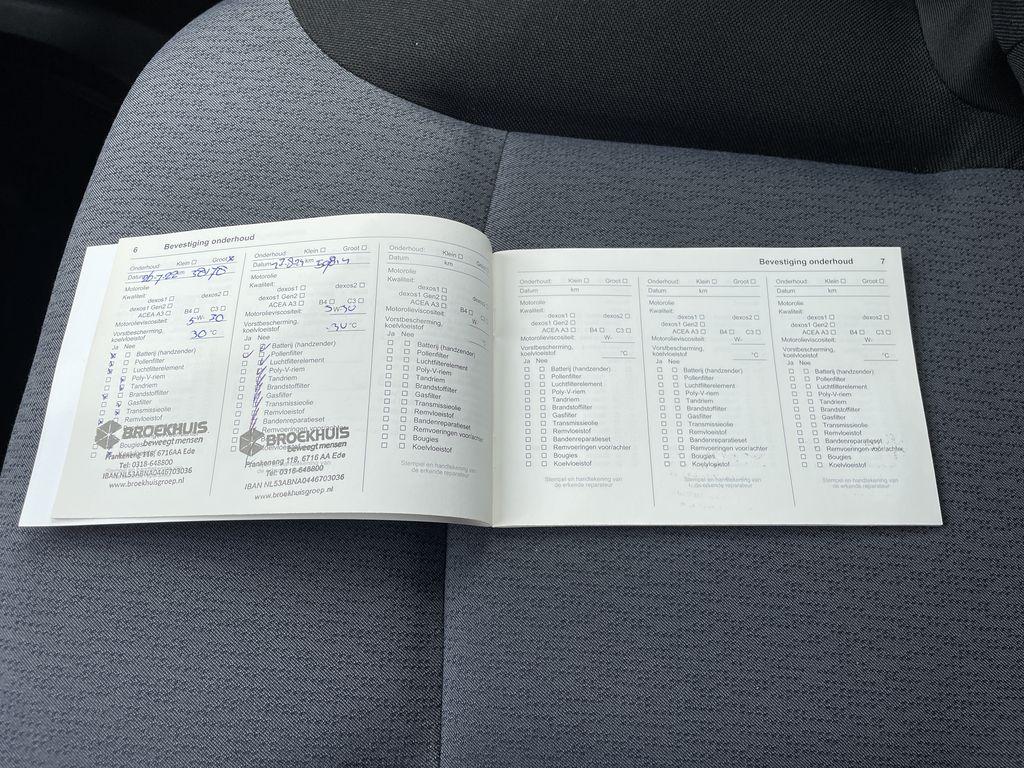 6 Bevestiging onderhoud
Onderhoud: Klein Groot
Datum km
Motorolie
Kwaliteit:
dexos1 dexos2
dexos1 Gen2
ACEA A3 B4 C3
Motorolieviscositeit: 5 W- 30
Vorstbescherming,
koelvloeistof 30 °C
Ja Nee
Batterij (handzender)
Pollenfilter
Luchtfilterelement
Poly-V-riem
Tandriem
Brandstoffilter
Gasfilter
Transmissieolie
Remvloeistof
BROEKHUIS
beweegt mensen
Bougies
Frankeneng 118, 6716AA Ede
Tel: 0318-648800
IBAN NL53ABNA0446703036
www.broekhuisgroep.nl
Onderhoud: Klein Groot
Datum km
Motorolie
Kwaliteit:
dexos1 dexos2
dexos1 Gen2
ACEA A3 B4 C3
Motorolieviscositeit: 5 W 30
Vorstbescherming,
koelvloeistof -30 °C
Ja Nee
Batterij (handzender)
Pollenfilter
Luchtfilterelement
Poly-V-riem
Tandriem
Brandstoffilter
Gasfilter
Transmissieolie
Remvloeistof
Bandenreparatieset
Remvoeringen
BROEKHUIS
beweegt mensen
Frankeneng 118, 6716 AA Ede
Tel: 0318-648800
IBAN NL53ABNA0446703036
www.broekhuisgroep.nl
Onderhoud: Klein Groot
Datum km
Motorolie
Kwaliteit:
dexos1
dexos1 Gen2
ACEA A3 B4 C3
Motorolieviscositeit: W-
Vorstbescherming,
koelvloeistof °C
Ja Nee
Batterij (handzender)
Pollenfilter
Luchtfilterelement
Poly-V-riem
Tandriem
Brandstoffilter
Gasfilter
Transmissieolie
Remvloeistof
Bandenreparatieset
Remvoeringen voor/achter
Bougies
Koelvloeistof
Stempel en handtekening van
de erkende reparateur
Bevestiging onderhoud 7
Onderhoud: Klein Groot
Datum km
Motorolie
Kwaliteit:
dexos1 dexos2
dexos1 Gen2
ACEA A3 B4 C3
Motorolieviscositeit: W-
Vorstbescherming,
koelvloeistof °C
Ja Nee
Batterij (handzender)
Pollenfilter
Luchtfilterelement
Poly-V-riem
Tandriem
Brandstoffilter
Gasfilter
Transmissieolie
Remvloeistof
Bandenreparatieset
Remvoeringen voor/achter
Bougies
Koelvloeistof
Stempel en handtekening van
de erkende reparateur
Onderhoud: Klein Groot
Datum km
Motorolie
Kwaliteit:
dexos1 dexos2
dexos1 Gen2
ACEA A3 B4 C3
Motorolieviscositeit: W-
Vorstbescherming,
koelvloeistof °C
Ja Nee
Batterij (handzender)
Pollenfilter
Luchtfilterelement
Poly-V-riem
Tandriem
Brandstoffilter
Gasfilter
Transmissieolie
Remvloeistof
Bandenreparatieset
Remvoeringen voor/achter
Bougies
Koelvloeistof
Stempel en handtekening van
de erkende reparateur
Onderhoud: Klein Groot
Datum km
Motorolie
Kwaliteit:
dexos1 dexos2
dexos1 Gen2
ACEA A3 B4 C3
Motorolieviscositeit: W-
Vorstbescherming,
koelvloeistof °C
Ja Nee
Batterij (handzender)
Pollenfilter
Luchtfilterelement
Poly-V-riem
Tandriem
Brandstoffilter
Gasfilter
Transmissieolie
Remvloeistof
Bandenreparatieset
Remvoeringen voor/achter
Bougies
Koelvloeistof
Stempel en handtekening van
de erkende reparateur